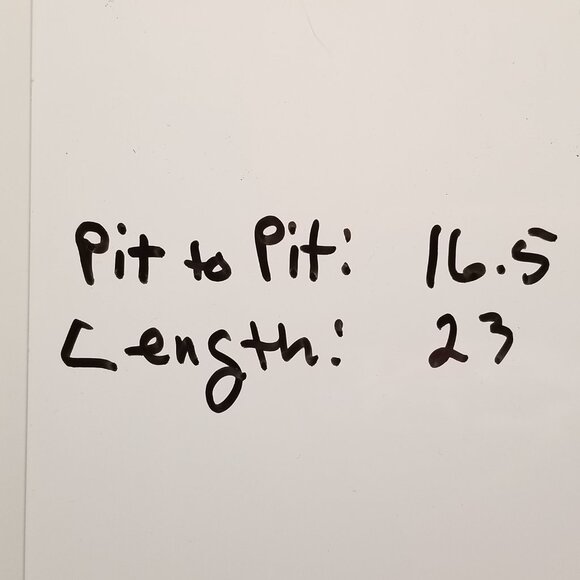 Pit to Pit: 16.5
Length: 23